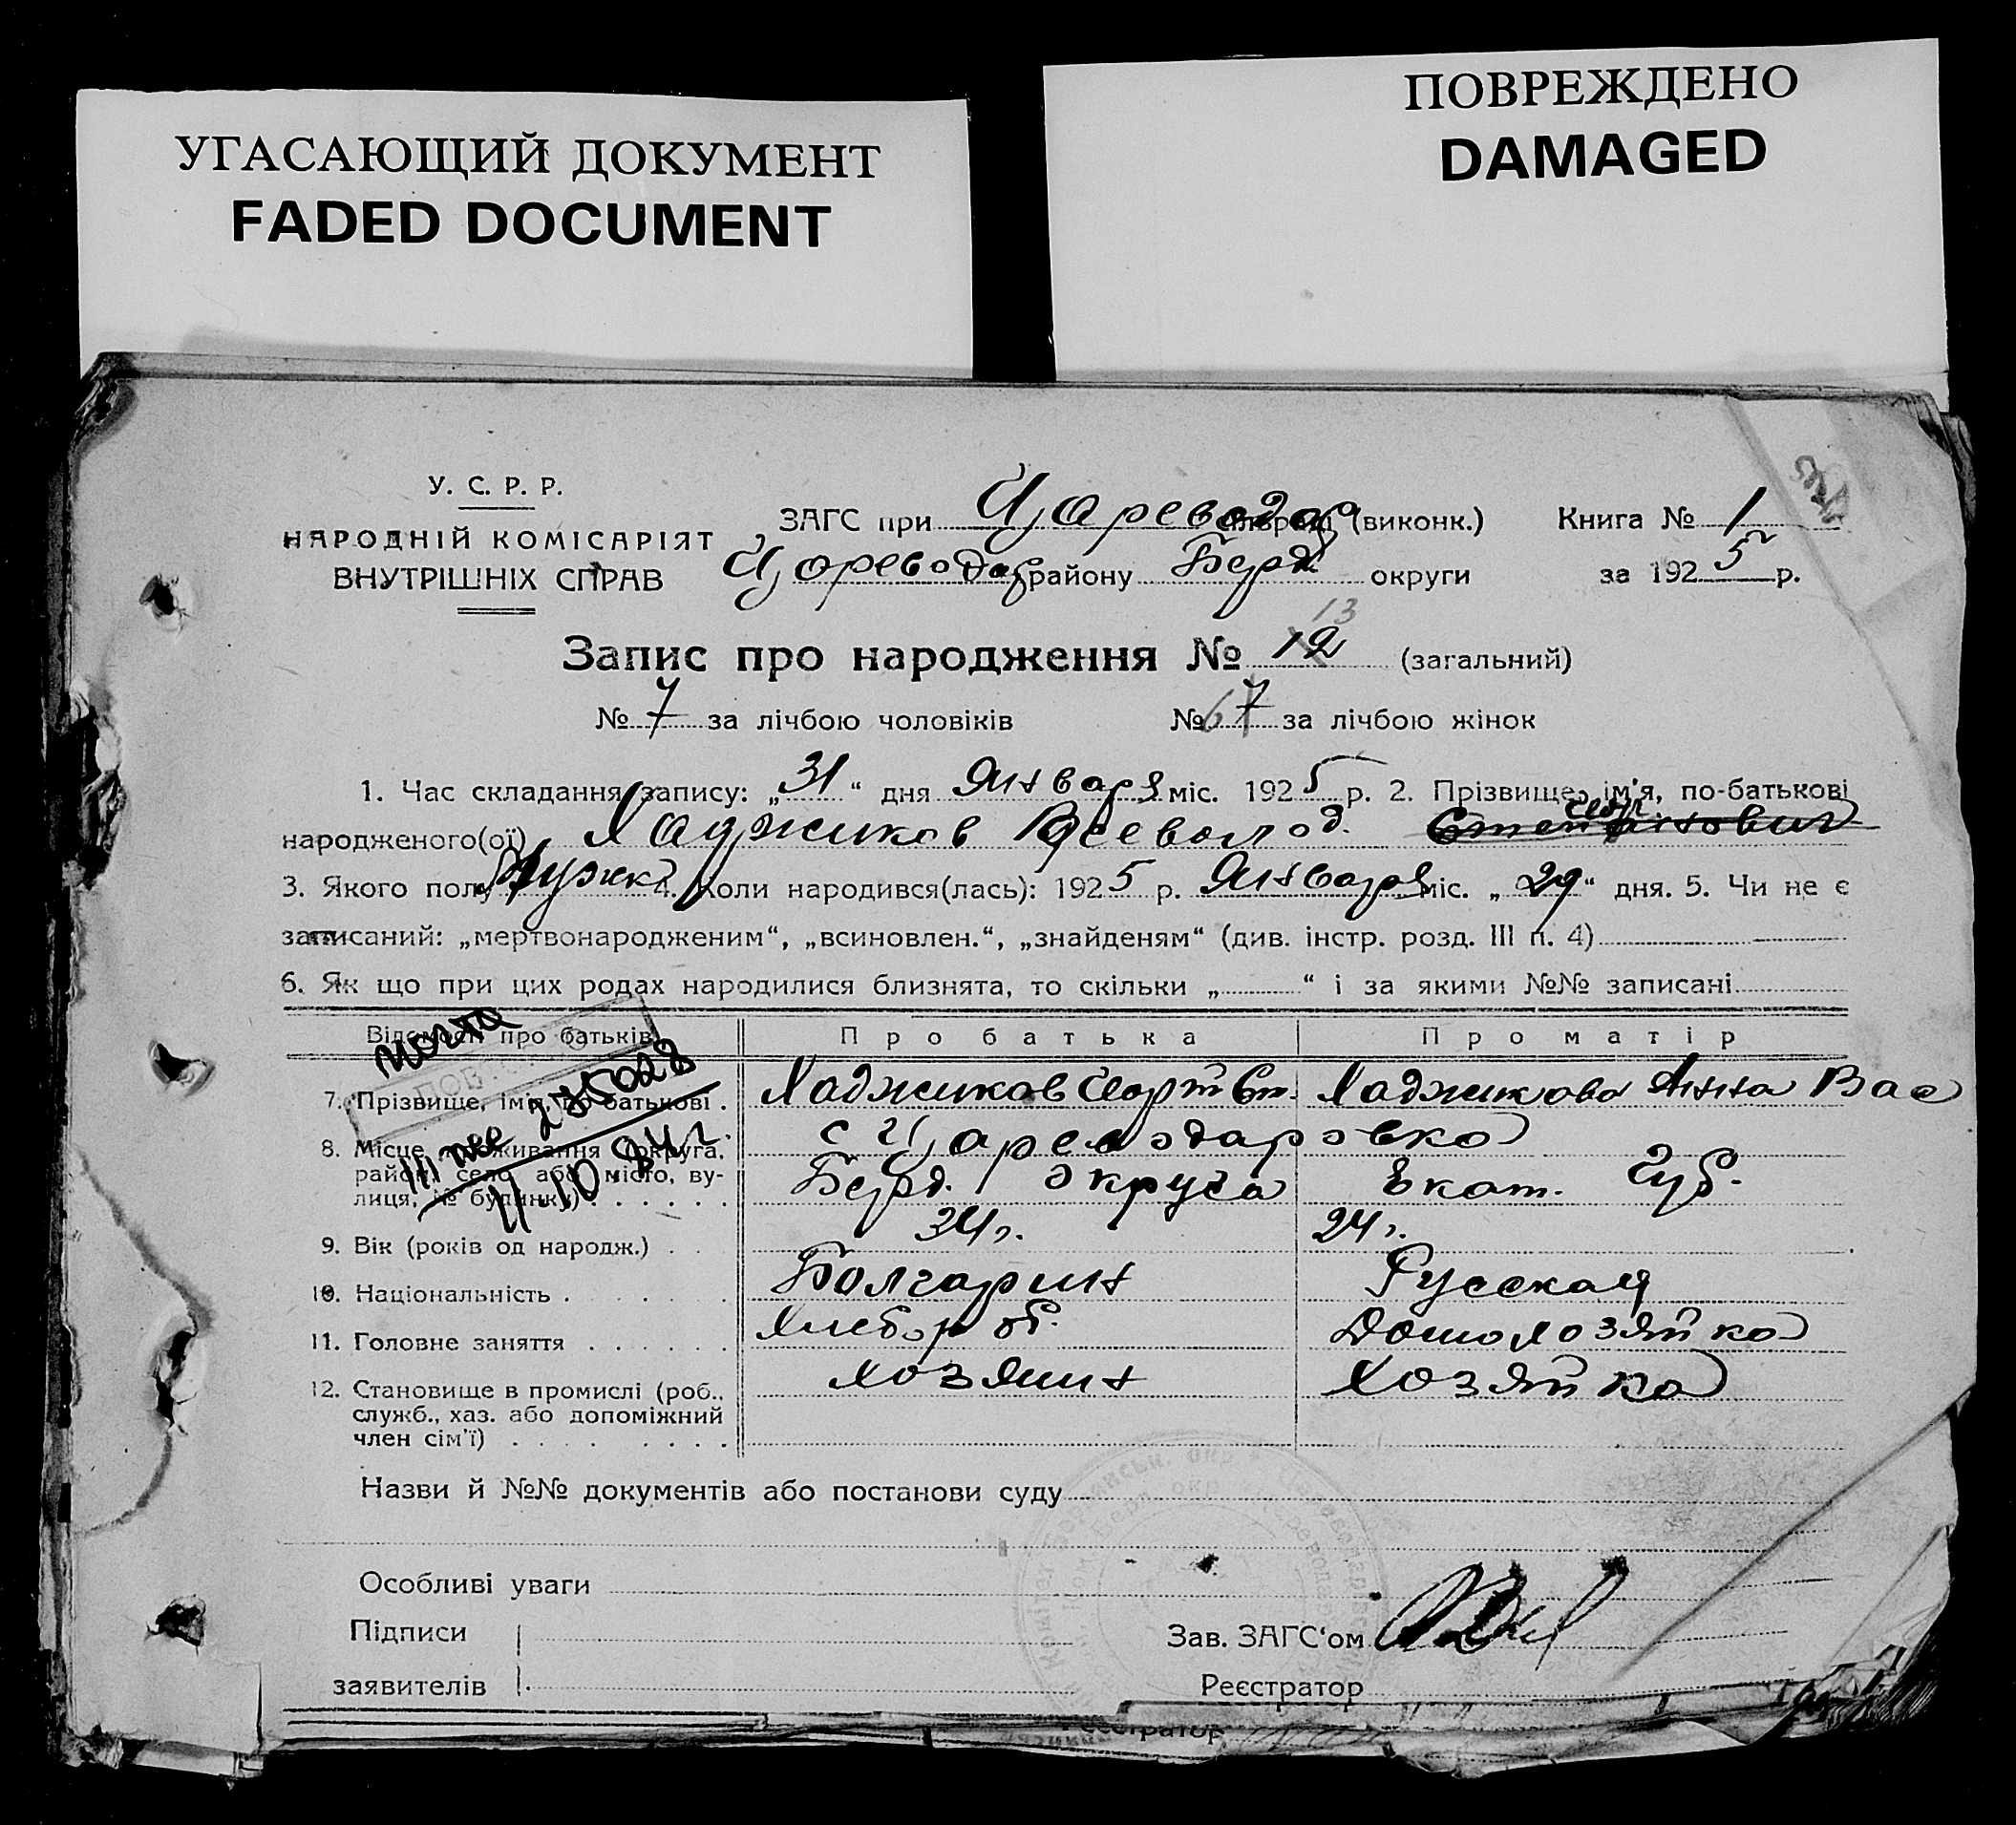 УГАСАЮЩИЙ ДОКУМЕНТ
FADED DOCUMENT
ПОВРЕЖДЕНО
DAMAGED
У. С. Р. Р.
НАРОДНІЙ КОМІСАРІЯТ
ВНУТРІШНІХ СПРАВ
ЗАГС при Цареводар (виконк.) Книга № 1
Цареводар району Берд округи за 1925 р.
13
Запис про народження № 12 (загальний)
№ 7 за лічбою чоловіків № 6 7 за лічбою жінок
1. Час складання запису: „31“ дня Января міс. 1925 р. 2. Прізвище, ім'я, по-батькові
народженого(ої) Хаджиков Всеволод Геор. Степанович
3. Якого полу Мужск 4. Коли народився(лась): 1925 р. Января міс. „29“ дня. 5. Чи не є
записаний: „мертвонародженим“, „всиновлен.“, „знайденям“ (див. інстр. розд. III п. 4)
6. Як що при цих родах народилися близнята, то скільки „ “ і за якими №№ записані
Відомості про батьків Про батька Про матір
7. Прізвище, ім'я, по батькові Хаджиков Георг Ст. Хаджикова Анна Вас
8. Місце проживання (округа, район, село або місто, вулиця, № будинку) с Цареводаровка
Берд. округа Екат. Губ.
9. Вік (років од народж.) 34 г. 24 г.
10. Національність Болгарин Русская
11. Головне заняття Хлебороб. Домохозяйка
12. Становище в промислі (роб., хозяин Хозяйка
служб., хаз. або допоміжний
член сім'ї)
11.10.84 г.
Назви й №№ документів або постанови суду
Особливі уваги
Підписи
заявителів
Зав. ЗАГС'ом
Реєстратор
Реєстратор